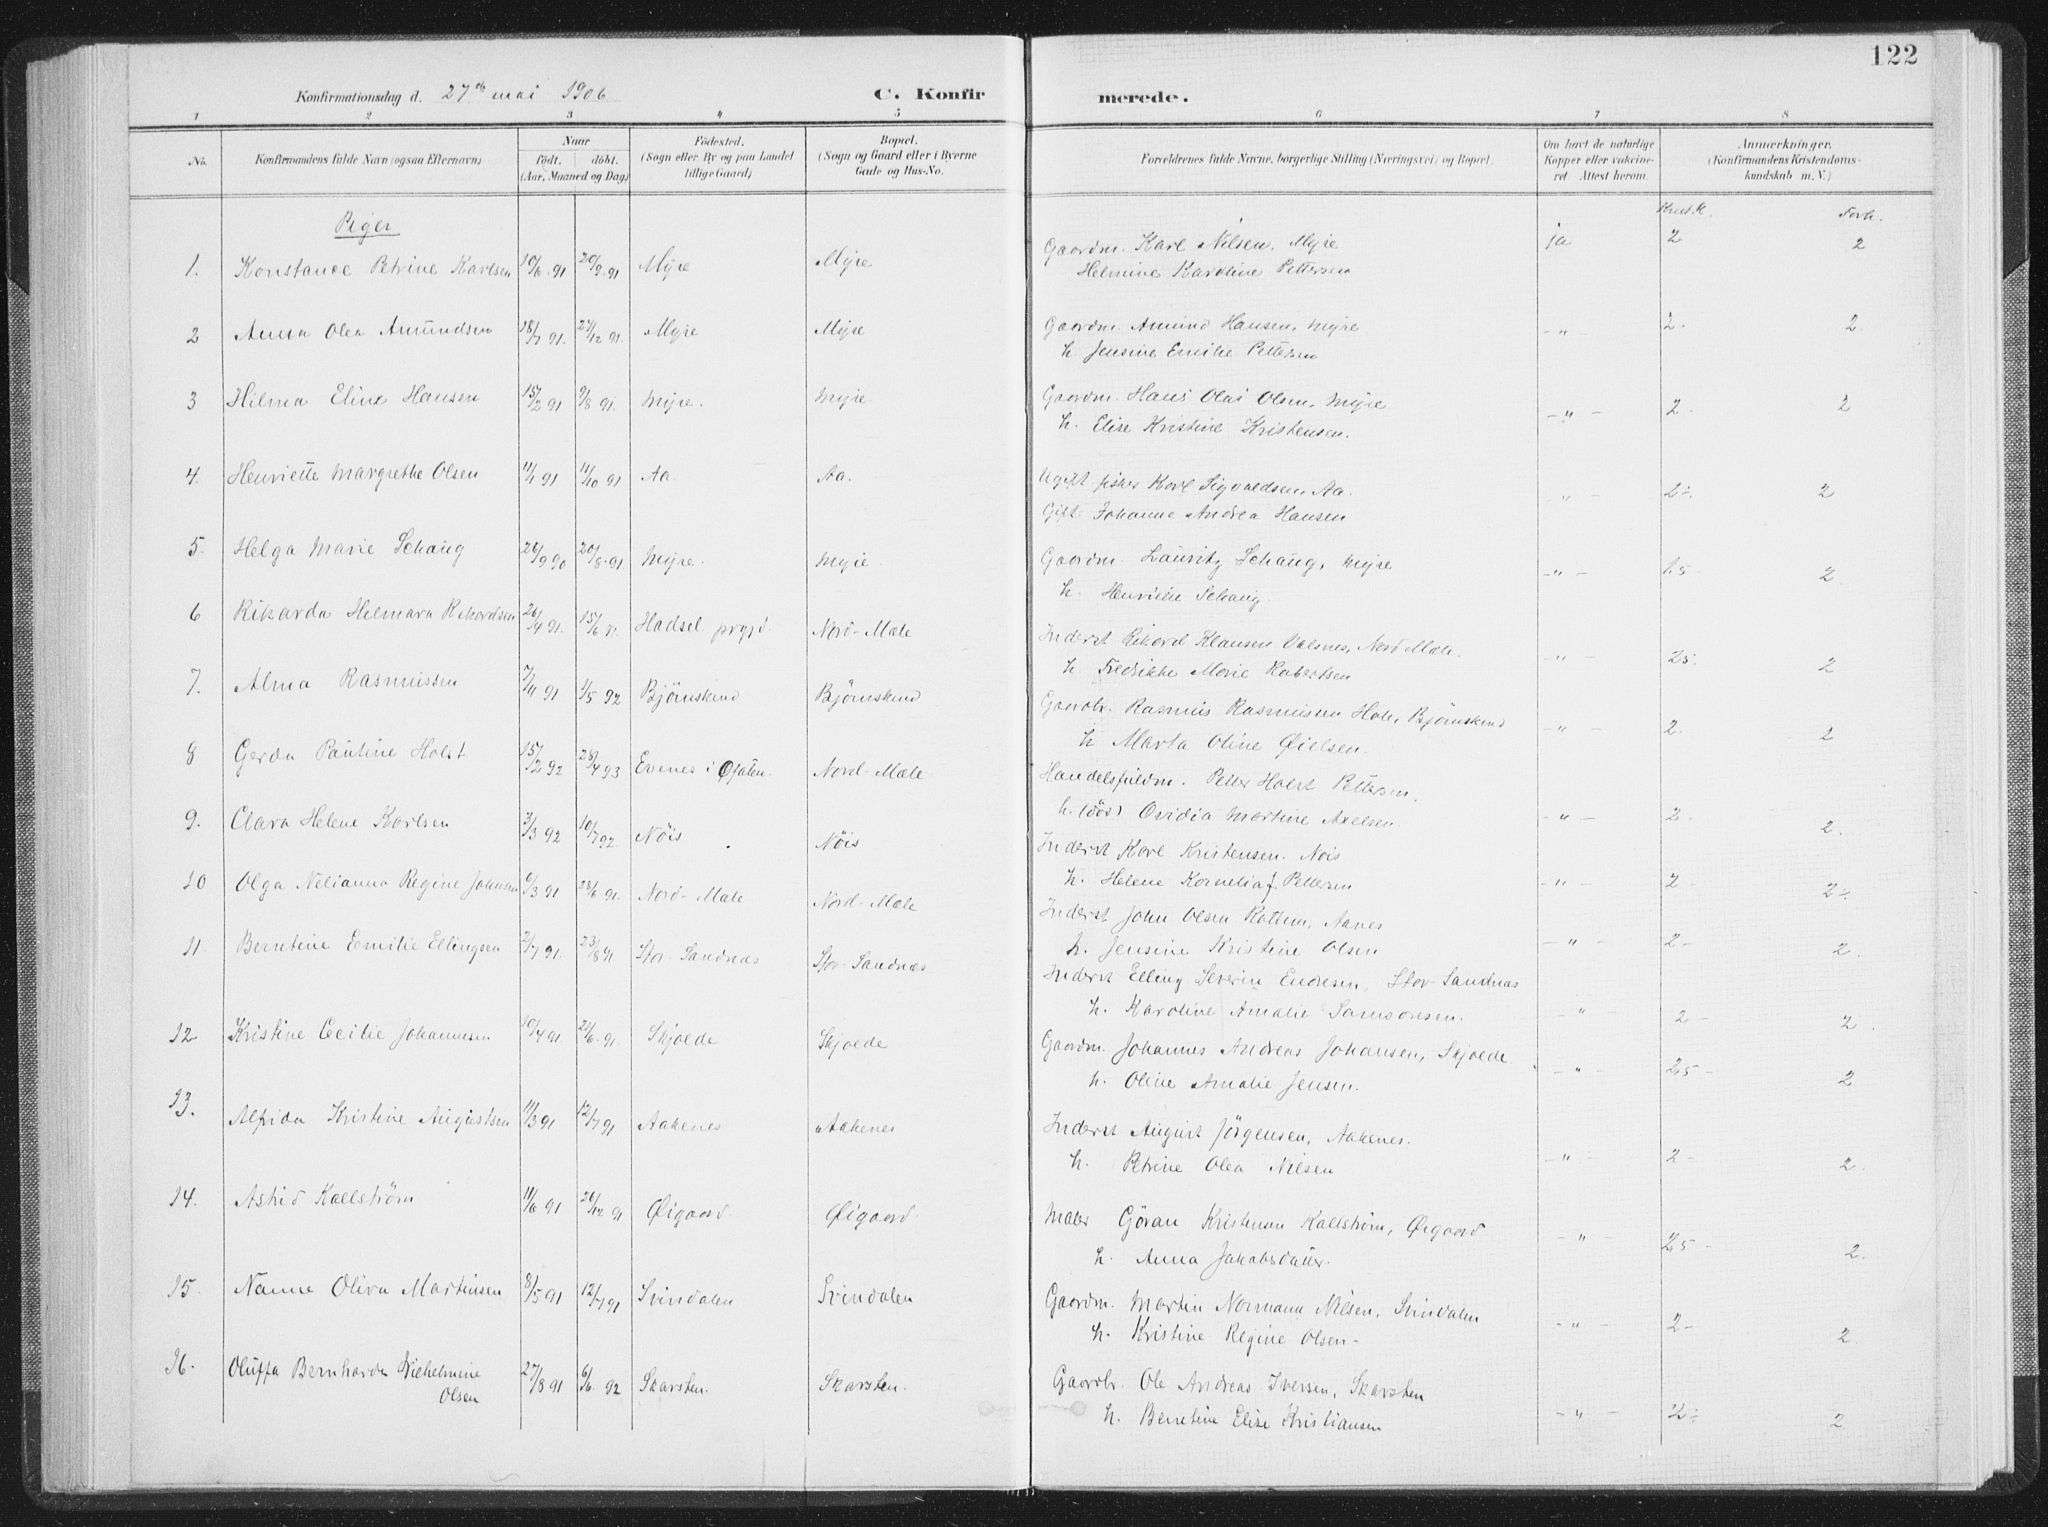 122
Konfirmationsdag d. 27de mai 1906
C. Konfirmerede.
1 2 3 4 5 6 7 8
No. Konfirmandens fulde Navn (ogsaa Efternavn) Naar født. døbt. (Aar, Maaned og Dag) Fødested. (Sogn eller By og paa Landet tillige Gaard) Bopæl. (Sogn og Gaard eller i Byerne Gade og Hus-No. Forældrenes fulde Navne, borgerlige Stilling (Næringsvei) og Bopæl. Om havt de naturlige Kopper eller vakcineret. Attest herom. Anmærkninger. (Konfirmandens Kristendomskundskab m. V.)
Piger
Krist.k. Forh.
1. Konstance Petrine Karlsen 19/6 91 20/9 91 Myre Myre Gaardm. Karl Nilsen, Myre ja 2 2
Helmine Karoline Pettersen
2 Anna Olea Amundsen 18/7 91. 27/12 91. Myre Myre Gaardm. Amund Hansen, Myre - " - 2. 2.
h. Jensine Emilie Pettersen
3 Hilma Eline Hansen 15/2 91 9/8 91. Myre. Myre Gaardm. Hans Olai Olsen, Myre - " - 2. 2
h. Elise Kristine Kristensen.
4. Henriette Margrethe Olsen 11/1 91 11/10 91 Aa Aa. Ugift fisker Karl Sigvaldsen, Aa. " - 2÷. 2
Gift Johanna Andrea Hansen
5. Helga Marie Schaug 26/9 90 20/8 91 Myre. Myre Gaardm. Lauritz Schaug, Myre - " - 1.5 - 2
h. Henriette Schaug
6 Rikarda Helmara Rikardsen 26/4 91. 15/6 91. Hadsel prgjd. Nord-Mæle Inderst Rikard Klausen Valsnes, Nord Mæle. " - 2.5. 2
h. Fredrikke Marie Robertsen
7. Alma Rasmussen 7/11 91 1/5 92 Bjørnskind Bjørnskind Gaardbr. Rasmus Rasmussen Hole, Bjørnskind " - 2. 2
h Marta Oline Øielsen.
8 Gerda Pauline Holst 15/2 92 28/4 93 Evenes i Ofoten. Nord-Mæle Handelsfuldm. Petter Holst Pettersen.
h. (død) Ovidia Martine Axelsen. - " - 2. 2.
9. Clara Helene Karlsen 3/3 92 10/7 92. Nøis Nøis Inderst Karl Kristensen. Nøis
h. Helene Kornelia f. Pettersen - " - 2 - 2÷
10 Olga Nelianna Regine Johnsen 6/3 91 28/6 91. Nord-Mæle Nord-Mæle Inderst John Olsen Rottem, Aanes
h. Jensine Kristine Olsen - " - 2 - 2.
11. Berntine Emilie Ellingsen 2/7 91. 23/8 91. Stor-Sandnæs Stor-Sandnæs Inderst Elling Severin Endresen, Stor-Sandnæs
h. Karoline Amalie Samsonsen. - " - 2 - 2.
12. Kristine Cecilie Johannesen 19/4 91. 21/6 91. Skjolde Skjolde Gaardm. Johannes Andreas Johansen, Skjolde
h. Oline Amalie Jensen. - " - 2.5 - 2
13. Alfrida Kristine Augustsen 11/3 91 12/7 91 Aakenes Aakenes Inderst August Jørgensen, Aakenes.
h. Petrine Olea Nilsen - " - 2 - 2.
14. Astrid Kallstrøm 11/6 91 26/12 91 Øigaard. Øigaard. Maler Göran Kristensen Kallstrøm, Øigaard
h. Anna Jakobsdatter. - " - 2.5 - 2.
15. Nanne Oliva Martinsen 8/5 91 12/7 91 Svindalen Svindalen Gaardm. Martin Normann Nilsen, Svindalen
h. Kristine Regine Olsen - - " - 2 - 2.
16. Oluffa Bernharda Vilhelmine Olsen 27/8 91 6/6 92 Skarsten. Skarsten. Gaardbr. Ole Andreas Iversen, Skarsten
h. Berntine Elise Kristiansen - " - 2÷ 2